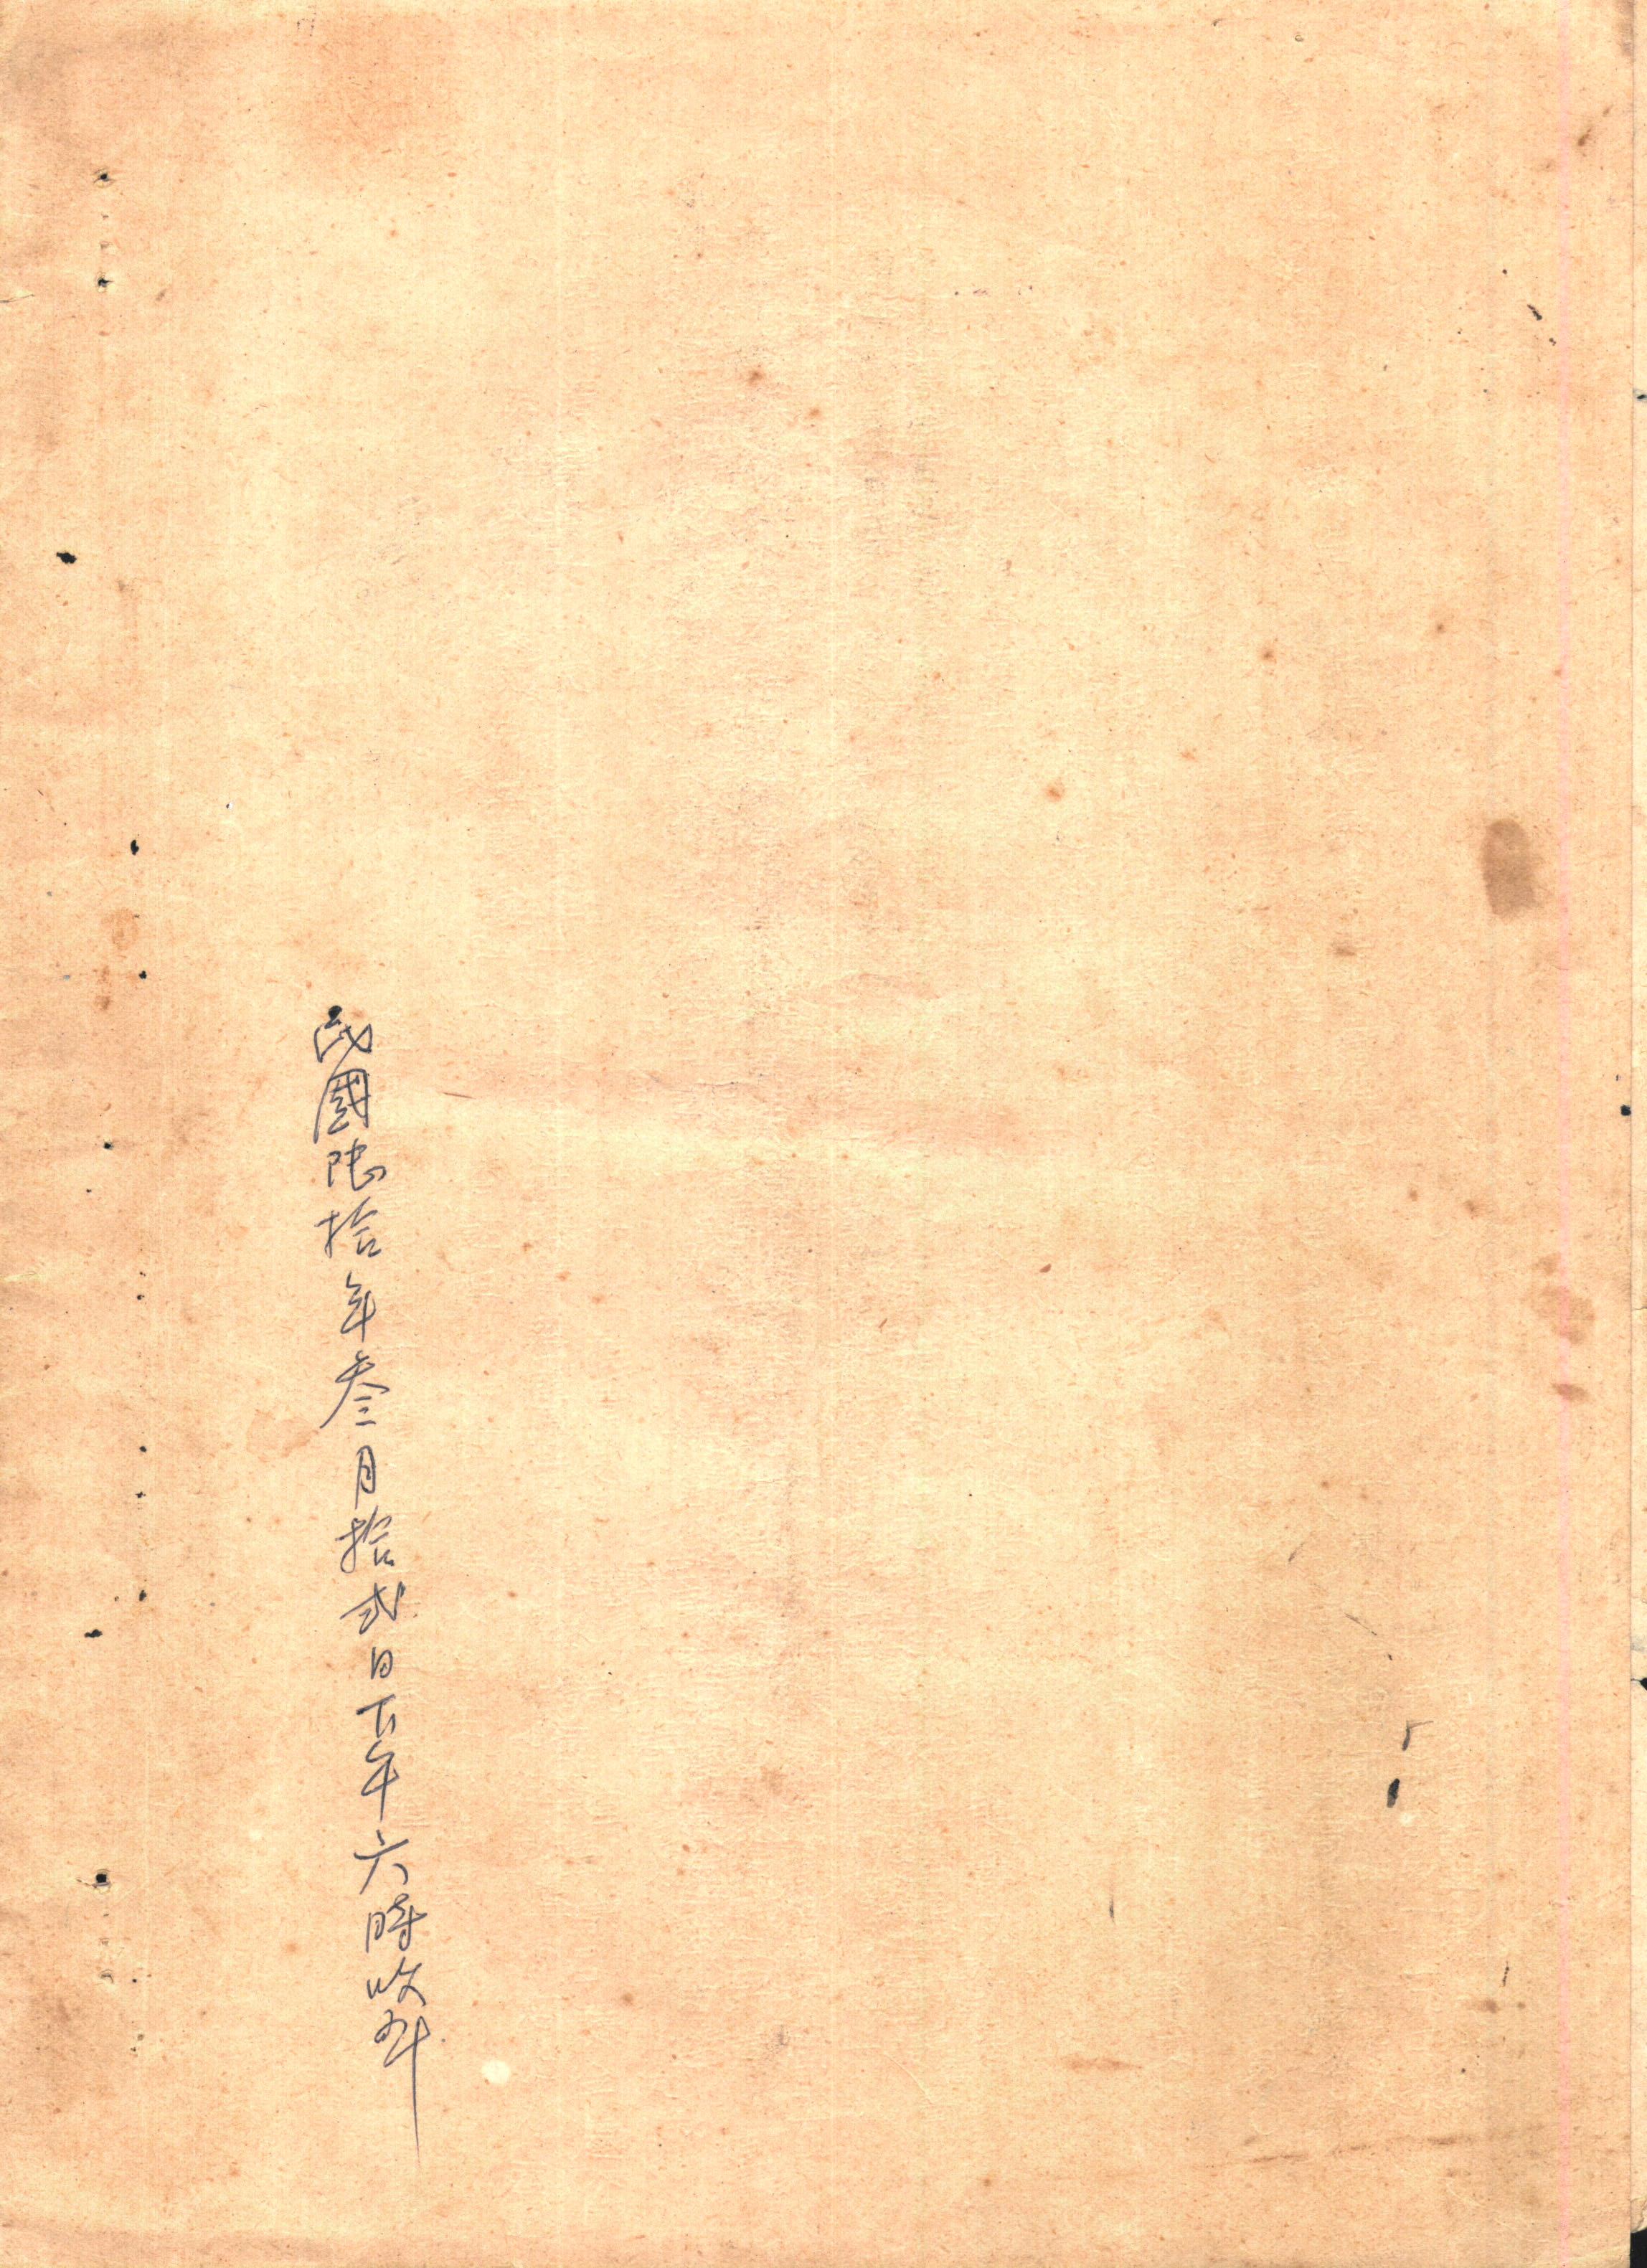 民國陸拾年叁月拾弍日下午六時收料